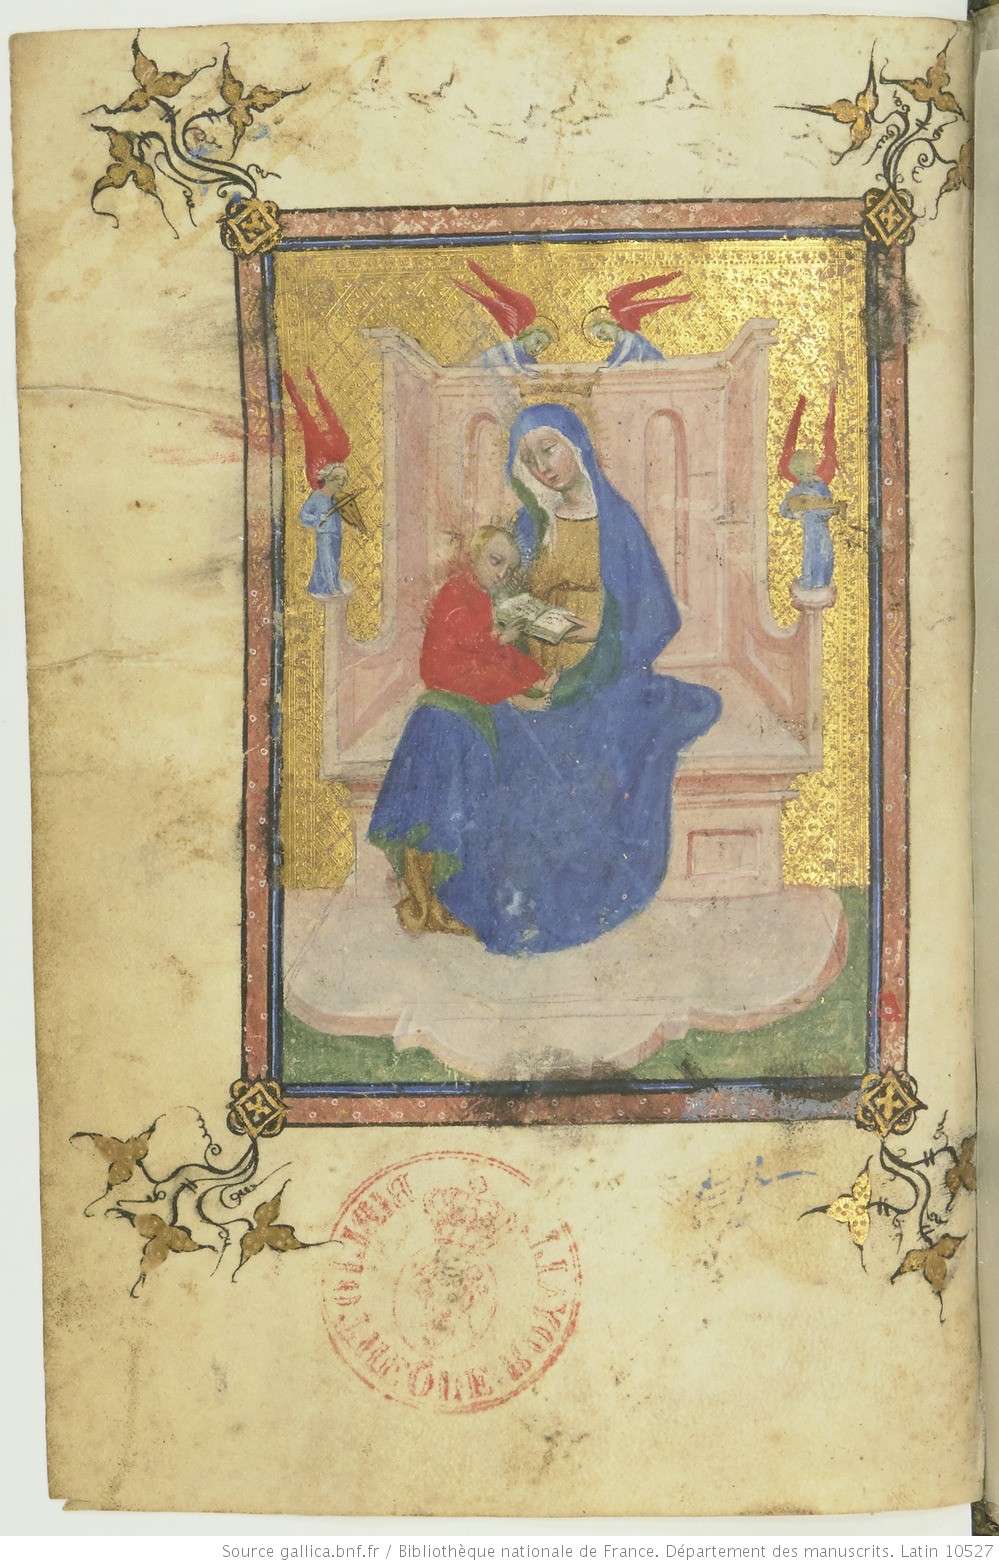 BIBLIOTHEQUE ROYALE
Source gallica.bnf.fr / Bibliothèque nationale de France. Département des manuscrits. Latin 10527